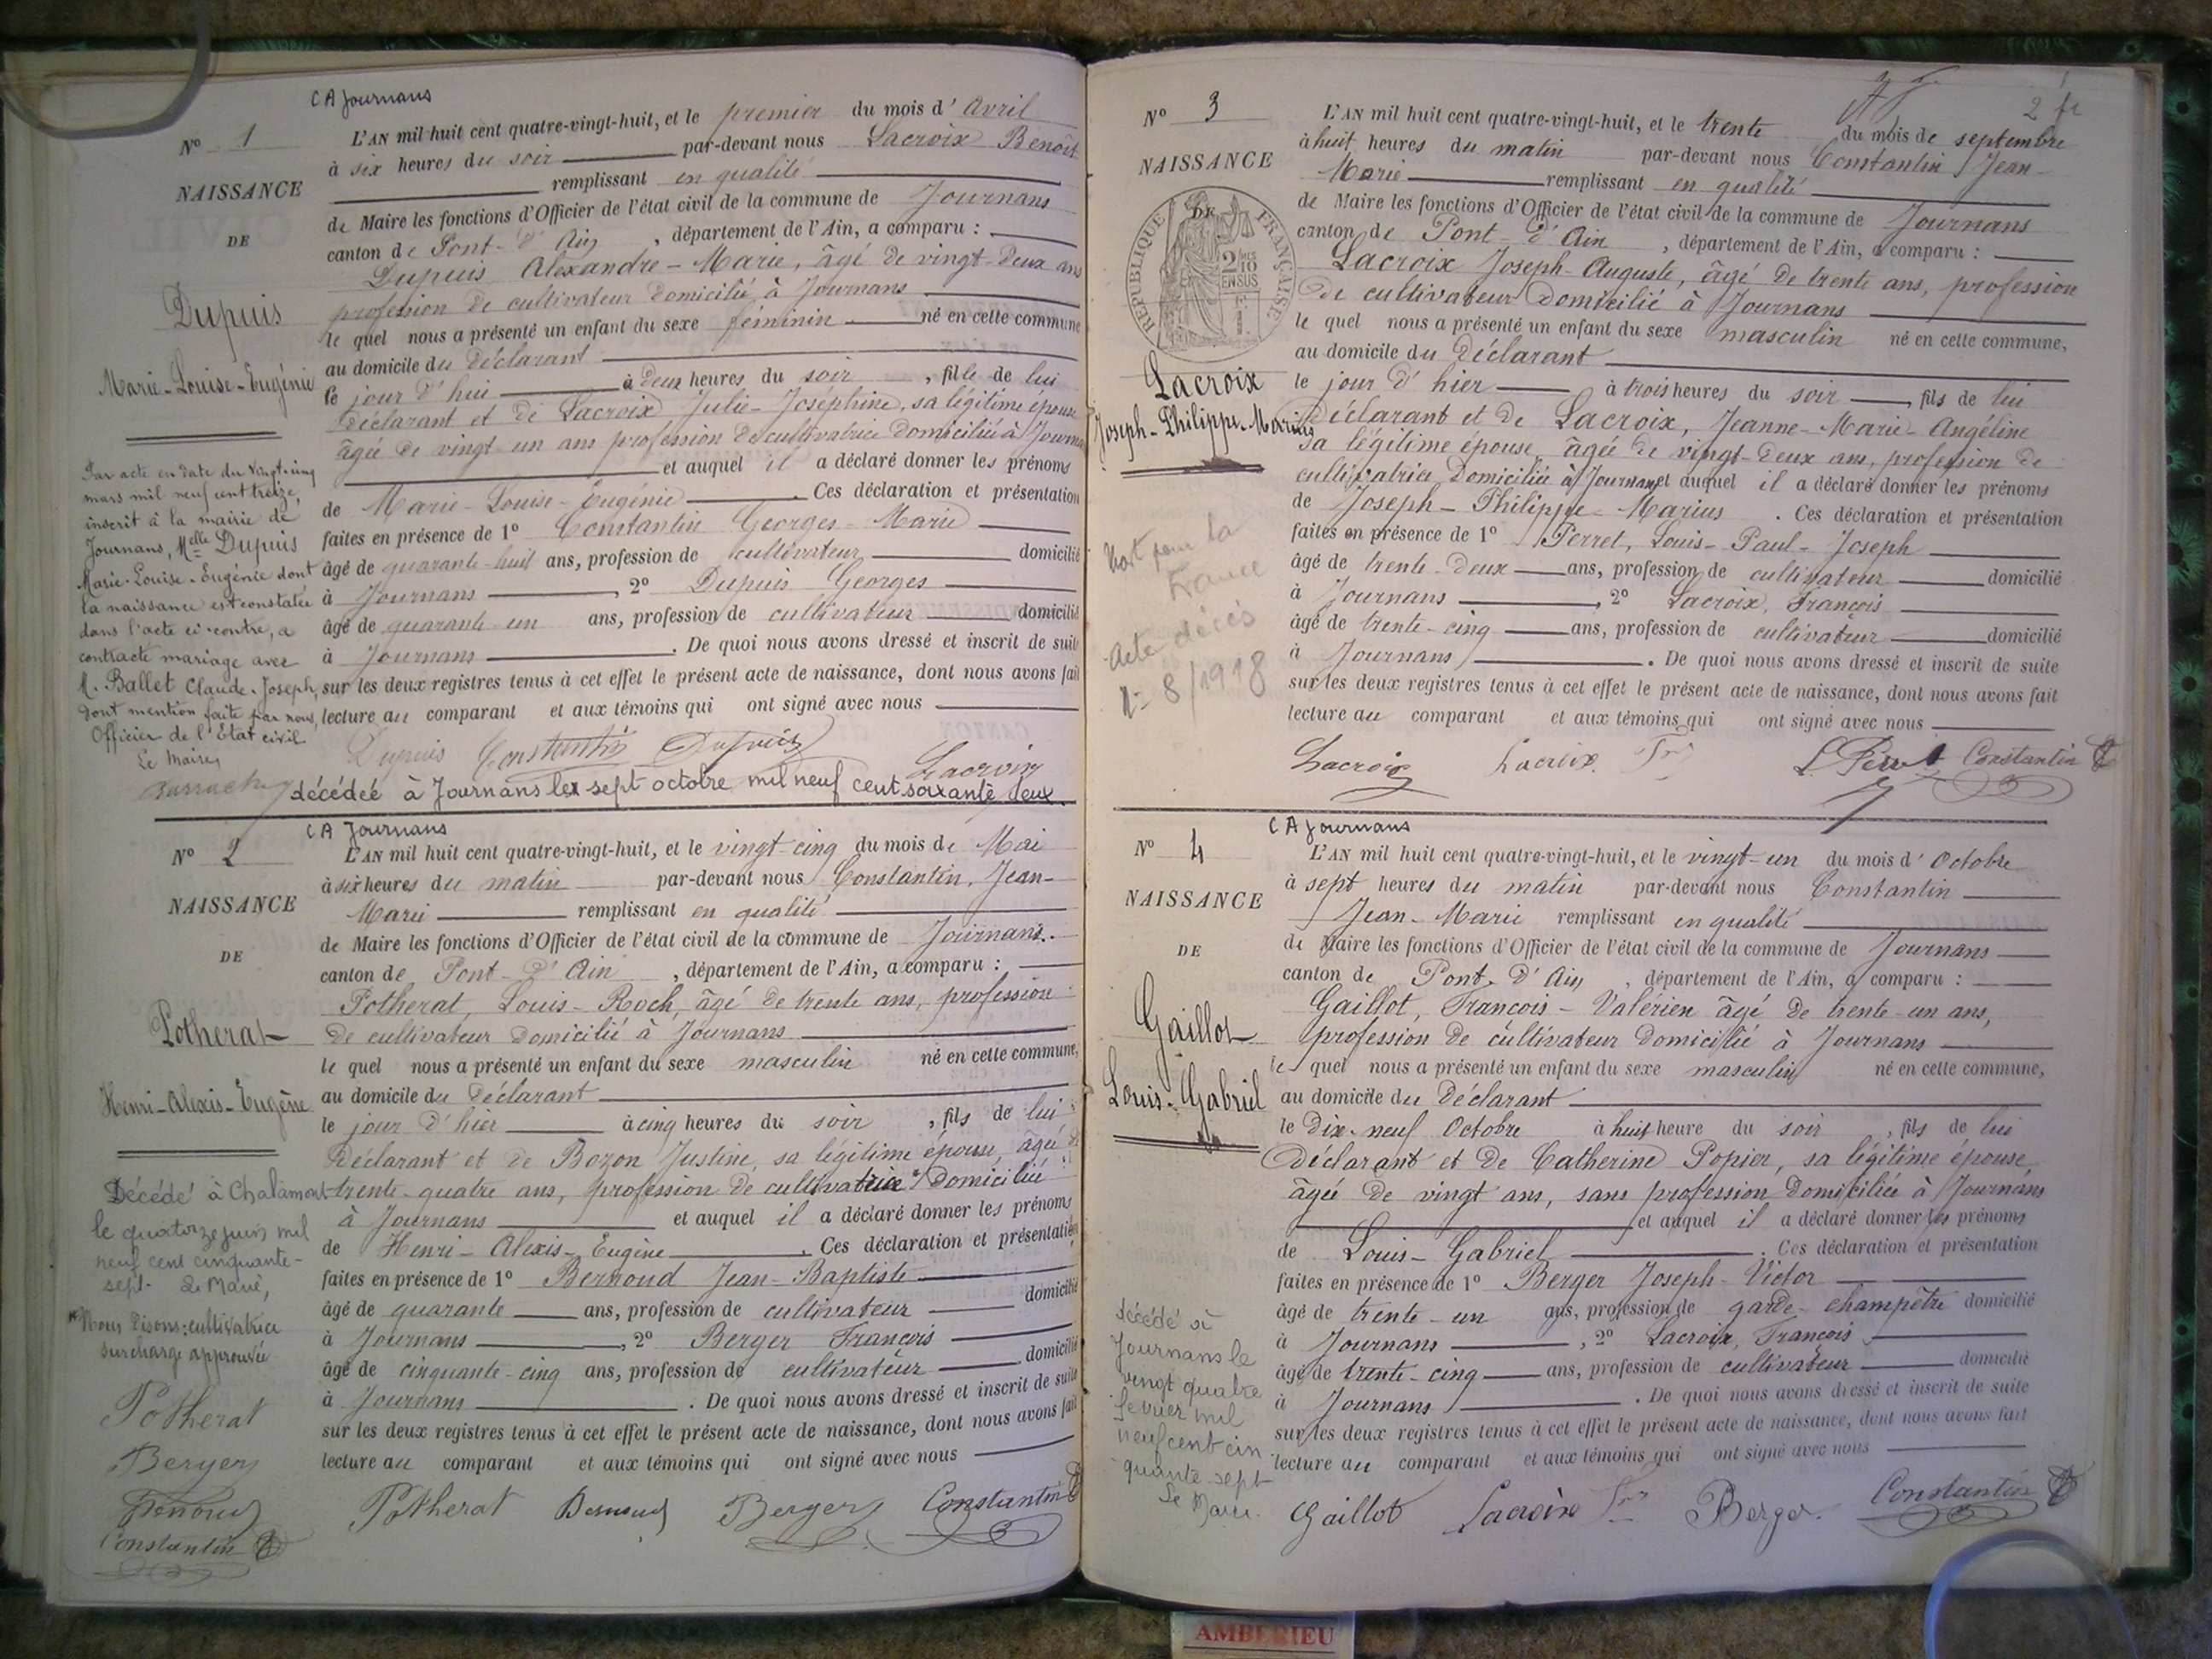 CA Journans
N° 1
NAISSANCE
DE
Dupuis
Marie-Louise-Eugénie
Par acte en date du vingt-cinq
mars mil neuf cent treize,
inscrit à la mairie de
Journans, Melle Dupuis
Marie-Louise-Eugénie dont
la naissance est constatée
dans l'acte ci-contre, a
contracté mariage avec
M. Ballet Claude-Joseph,
dont mention faite par nous,
Officier de l'Etat civil
Le Maire,
L'AN mil huit cent quatre-vingt-huit, et le premier du mois d'Avril
à six heures du soir par-devant nous Lacroix Benoît
remplissant en qualité
de Maire les fonctions d'Officier de l'état civil de la commune de Journans
canton de Pont-d'Ain, département de l'Ain, a comparu :
Dupuis Alexandre-Marie, âgé de vingt-deux ans
profession de cultivateur domicilié à Journans
le quel nous a présenté un enfant du sexe féminin né en cette commune
au domicile du déclarant
le jour d'hui à deux heures du soir, fille de lui
déclarant et de Lacroix Julie-Joséphine, sa légitime épouse
âgée de vingt un ans profession de cultivatrice domiciliée à Journans
et auquel il a déclaré donner les prénoms
de Marie-Louise-Eugénie. Ces déclaration et présentation
faites en présence de 1° Constantin Georges-Marie
âgé de quarante-huit ans, profession de cultivateur domicilié
à Journans, 2° Dupuis Georges
âgé de quarante-un ans, profession de cultivateur domicilié
à Journans. De quoi nous avons dressé et inscrit de suite
sur les deux registres tenus à cet effet le présent acte de naissance, dont nous avons fait
lecture au comparant et aux témoins qui ont signé avec nous
Dupuis Constantin Dupuis Lacroix
décédée à Journans le sept octobre mil neuf cent soixante deux.
CA Journans
N° 2
NAISSANCE
DE
Potherat
Henri-Alexis-Eugène
Décédé à Chalamont
le quatorze juin mil
neuf cent cinquante-
sept. Le Maire,
Nous disons: cultivatrice
surcharge approuvée
Potherat
Berger
Bernoud
Constantin
L'AN mil huit cent quatre-vingt-huit, et le vingt-cinq du mois de Mai
à six heures du matin par-devant nous Constantin, Jean-
Marie remplissant en qualité
de Maire les fonctions d'Officier de l'état civil de la commune de Journans.
canton de Pont-d'Ain, département de l'Ain, a comparu :
Potherat, Louis-Roch, âgé de trente ans, profession
de cultivateur domicilié à Journans
le quel nous a présenté un enfant du sexe masculin né en cette commune,
au domicile du déclarant
le jour d'hier à cinq heures du soir, fils de lui
déclarant et de Bozon Justine, sa légitime épouse, âgée de
trente-quatre ans, profession de cultivatrice domiciliée
à Journans et auquel il a déclaré donner les prénoms
de Henri-Alexis-Eugène. Ces déclaration et présentation
faites en présence de 1° Bernoud Jean-Baptiste
âgé de quarante ans, profession de cultivateur domicilié
à Journans, 2° Berger François
âgé de cinquante-cinq ans, profession de cultivateur domicilié
à Journans. De quoi nous avons dressé et inscrit de suite
sur les deux registres tenus à cet effet le présent acte de naissance, dont nous avons fait
lecture au comparant et aux témoins qui ont signé avec nous
Potherat Bernoud Berger Constantin
N° 3
NAISSANCE
DE
RÉPUBLIQUE FRANÇAISE
2/10 EN SUS
Lacroix
Joseph-Philippe-Marius
Mort pour la
France
Acte décès
n° 8/1918
L'AN mil huit cent quatre-vingt-huit, et le trente du mois de septembre
à huit heures du matin par-devant nous Constantin Jean-
Marie remplissant en qualité
de Maire les fonctions d'Officier de l'état civil de la commune de Journans
canton de Pont-d'Ain, département de l'Ain, a comparu :
Lacroix Joseph-Auguste, âgé de trente ans, profession
de cultivateur domicilié à Journans
le quel nous a présenté un enfant du sexe masculin né en cette commune,
au domicile du déclarant
le jour d'hier à trois heures du soir, fils de lui
déclarant et de Lacroix, Jeanne-Marie-Angéline
sa légitime épouse, âgée de vingt-deux ans, profession de
cultivatrice domiciliée à Journans et auquel il a déclaré donner les prénoms
de Joseph-Philippe-Marius. Ces déclaration et présentation
faites en présence de 1° Perret, Louis-Paul-Joseph
âgé de trente-deux ans, profession de cultivateur domicilié
à Journans, 2° Lacroix, François
âgé de trente-cinq ans, profession de cultivateur domicilié
à Journans. De quoi nous avons dressé et inscrit de suite
sur les deux registres tenus à cet effet le présent acte de naissance, dont nous avons fait
lecture au comparant et aux témoins qui ont signé avec nous
Lacroix Lacroix Fs L. Perret Constantin
CA Journans
N° 4
NAISSANCE
DE
Gaillot
Louis-Gabriel
Décédé à
Journans le
vingt quatre
février mil
neuf cent cin
quante-sept
Le Maire.
L'AN mil huit cent quatre-vingt-huit, et le vingt-un du mois d'Octobre
à sept heures du matin par-devant nous Constantin
Jean-Marie remplissant en qualité
de Maire les fonctions d'Officier de l'état civil de la commune de Journans
canton de Pont-d'Ain, département de l'Ain, a comparu :
Gaillot, François-Valérien âgé de trente-un ans,
profession de cultivateur domicilié à Journans
le quel nous a présenté un enfant du sexe masculin né en cette commune,
au domicile du déclarant
le dix-neuf Octobre à huit heure du soir, fils de lui
déclarant et de Catherine Popier, sa légitime épouse,
âgée de vingt ans, sans profession domiciliée à Journans
et auquel il a déclaré donner les prénoms
de Louis-Gabriel. Ces déclaration et présentation
faites en présence de 1° Berger Joseph-Victor
âgé de trente-un ans, profession de garde-champêtre domicilié
à Journans, 2° Lacroix, François
âgé de trente-cinq ans, profession de cultivateur domicilié
à Journans. De quoi nous avons dressé et inscrit de suite
sur les deux registres tenus à cet effet le présent acte de naissance, dont nous avons fait
lecture au comparant et aux témoins qui ont signé avec nous
Gaillot Lacroix Fs Berger. Constantin
AMBERIEU